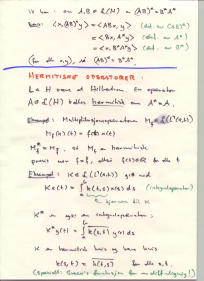 Vi har: om A, B ∈ L(H) är (AB)* = B*A*
Bevis: <x, (AB)*y> = <ABx, y> (def. av (AB)*)
= <Bx, A*y> (def. av A*)
= <x, B*A*y> (def. av B*)
(för alla x, y), så (AB)* = B*A*.
HERMITISKE OPERATORER:
La H være et Hilbertrom. En operator
A ∈ L(H) kalles hermitisk om A* = A.
Eksempel: Multiplikasjonsoperatoren M_f ∈ L(L²(a,b))
M_f x(t) = f(t) x(t)
M_f* = M_f̄, så M_f er hermitisk
presis når f = f̄, altså f(t) ∈ ℝ for alle t
Eksempel: K ∈ L(L²(a,b)) gitt ved
Kx(t) = ∫ k(t,s) x(s) ds (integraloperator)
kjernen til K
K* er også en integraloperator:
K*y(t) = ∫ k(s,t) y(s) ds
K er hermitisk hvis og bare hvis
k(s,t) = k(t,s) for alle s,t.
(spesielt: Green's funksjon for